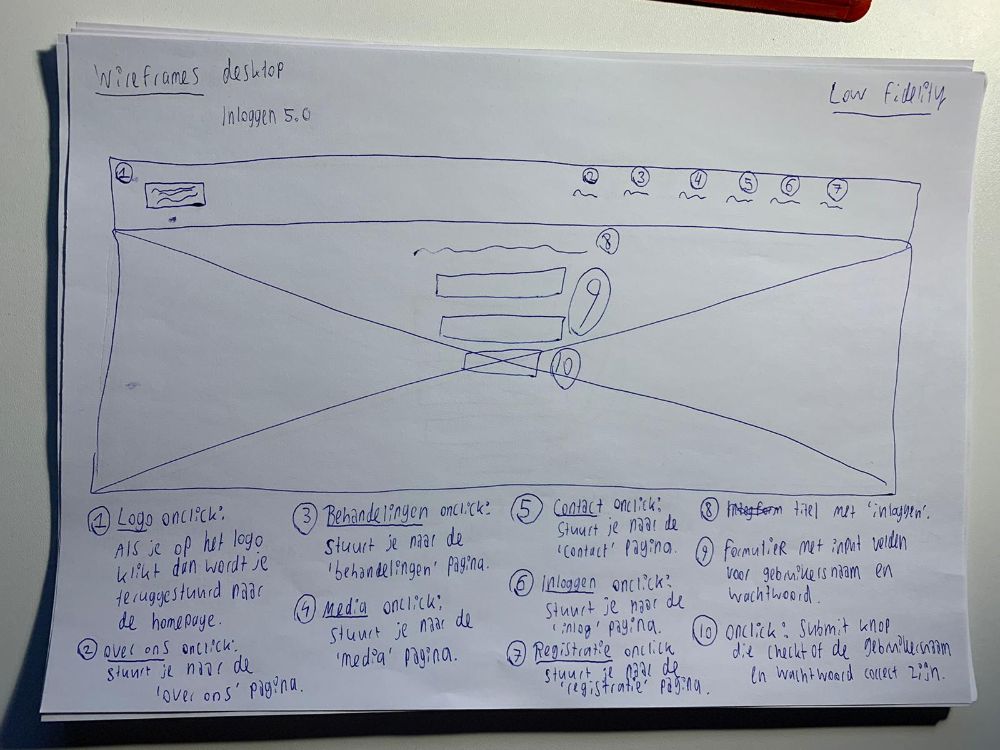 Wireframes desktop
Low Fidelity
Inloggen 5.0
1
2 3 4 5 6 7
8
9
10
1 Logo onclick:
Als je op het logo
klikt dan wordt je
teruggestuurd naar
de homepage.
2 over ons onclick:
stuurt je naar de
'over ons' pagina.
3 Behandelingen onclick:
stuurt je naar de
'behandelingen' pagina.
4 Media onclick:
stuurt je naar de
'media' pagina.
5 Contact onclick:
stuurt je naar de
'contact' pagina.
6 Inloggen onclick:
stuurt je naar de
'inlog' pagina.
7 Registratie onclick
stuurt je naar de
'registratie' pagina.
8 titel met 'inloggen'.
9 Formulier met input velden
voor gebruikersnaam en
wachtwoord.
10 onclick: Submit knop
die checkt of de gebruikersnaam
en wachtwoord correct zijn.